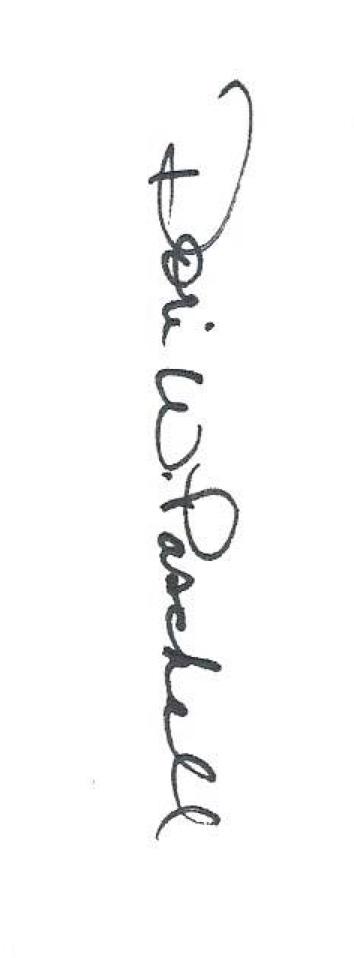 Tori W. Paschell